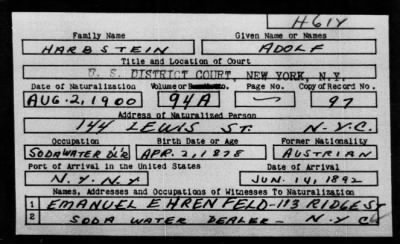 H614
Family Name Given Name or Names
HARBSTEIN ADOLF
Title and Location of Court
U. S. DISTRICT COURT, NEW YORK, N.Y.
Date of Naturalization Volume or Page No. Copy of Record No.
AUG. 2, 1900 94A — 97
Address of Naturalized Person
144 LEWIS ST. N.Y.C.
Occupation Birth Date or Age Former Nationality
SODA WATER D'L'R APR. 2, 1878 AUSTRIAN
Port of Arrival in the United States Date of Arrival
N.Y. N.Y JUN. 14, 1892
Names, Addresses and Occupations of Witnesses To Naturalization
1 EMANUEL EHRENFELD-113 RIDGE ST
2 SODA WATER DEALER- N.Y C